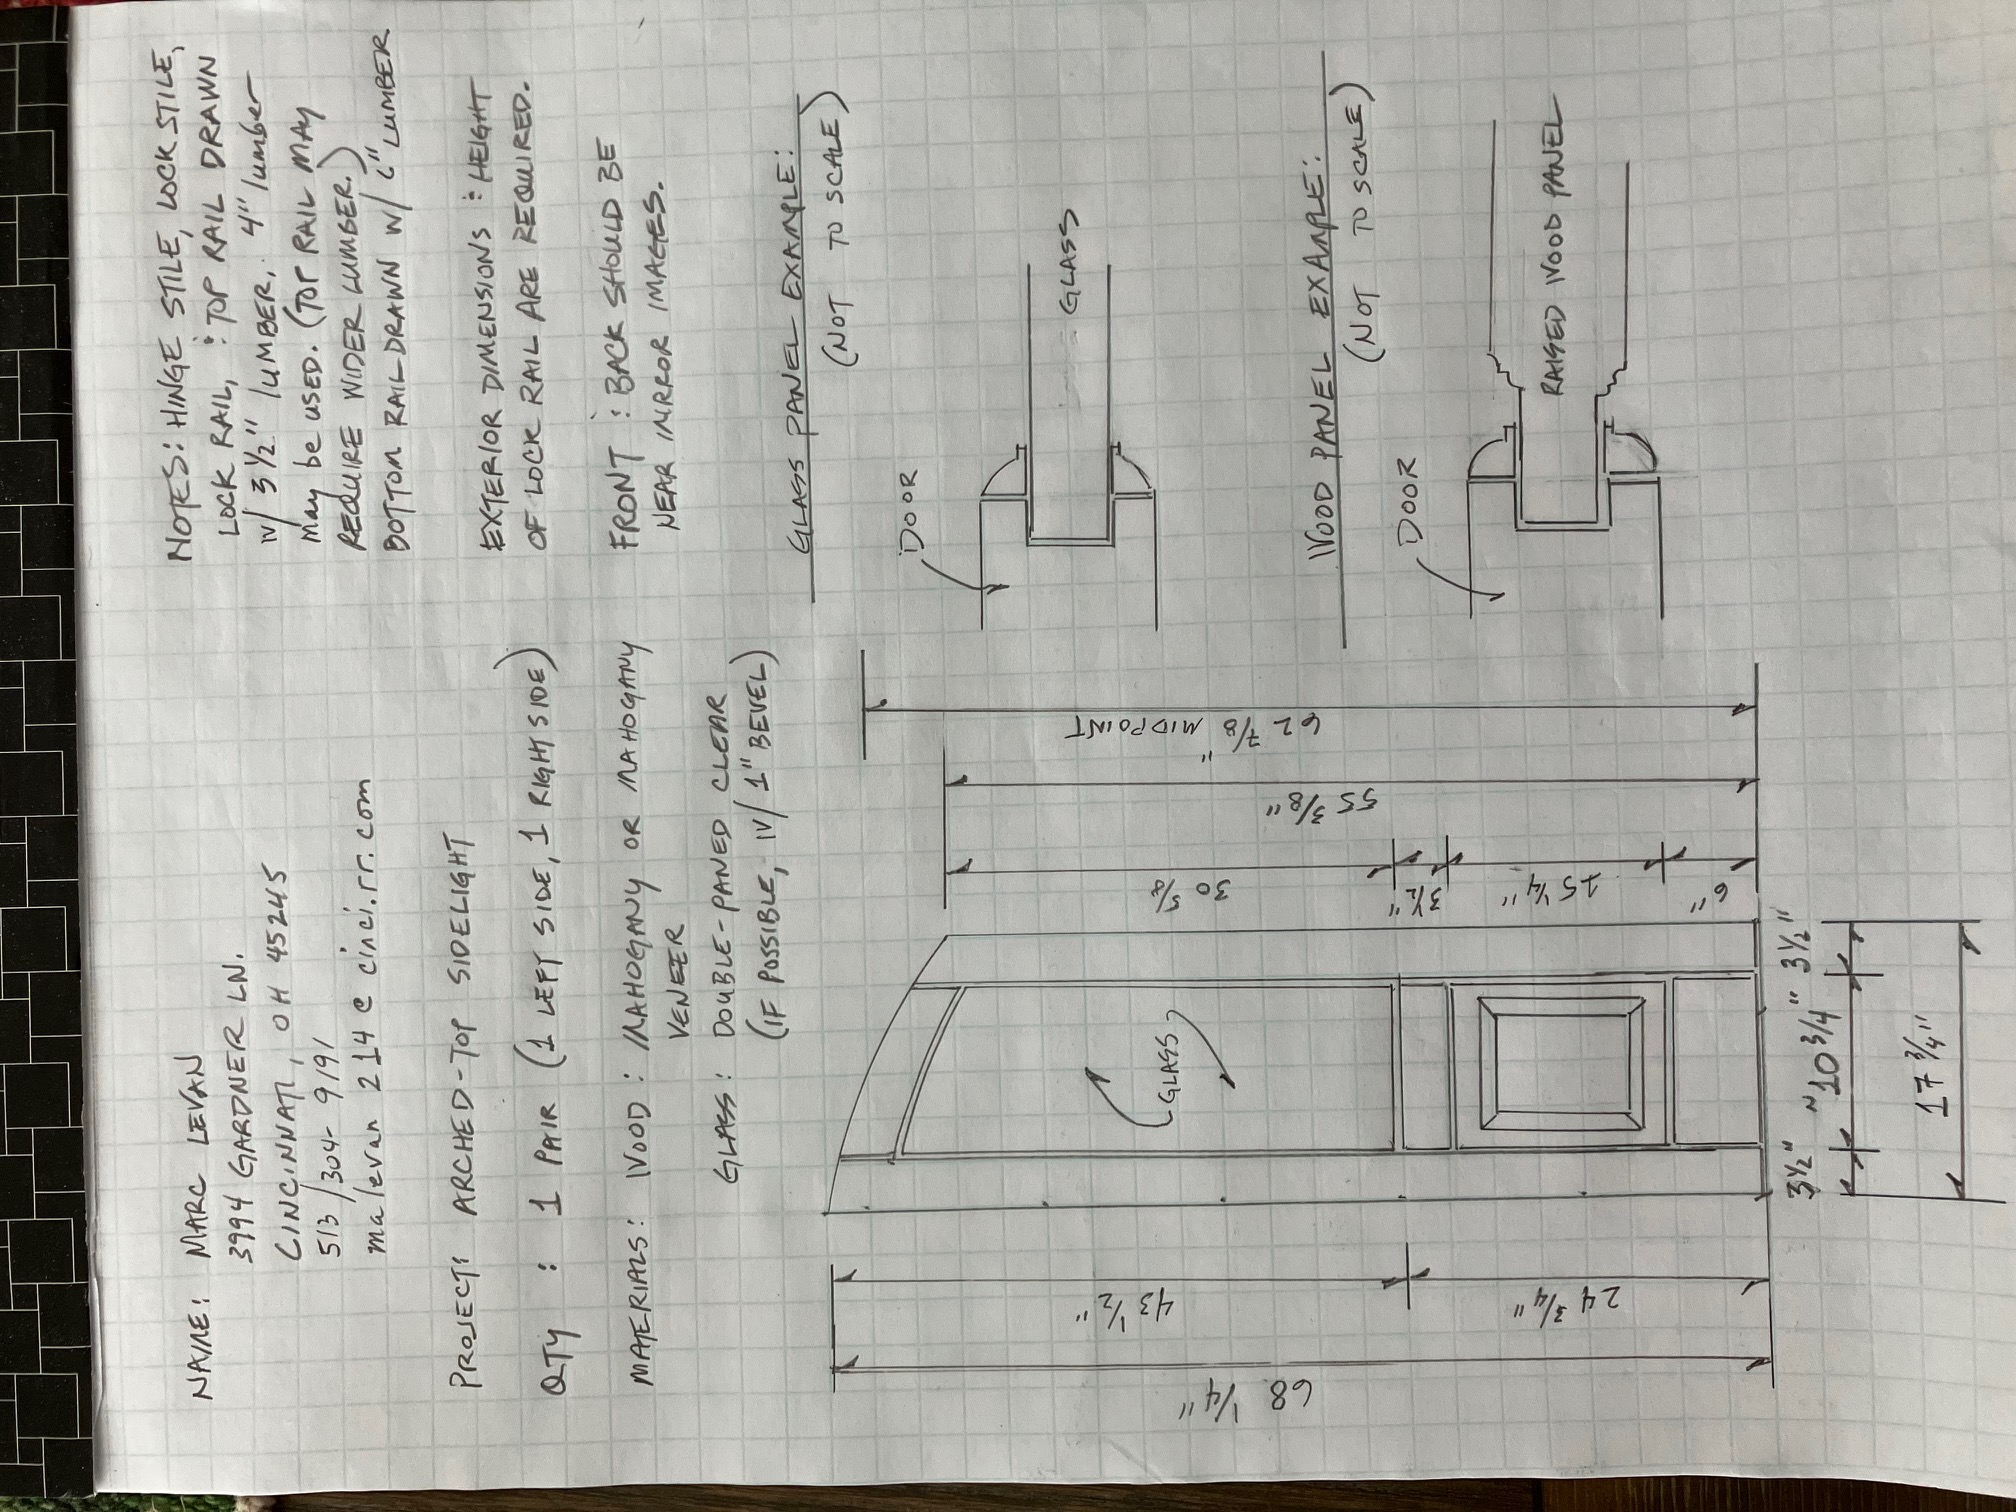 NAME: MARC LEVAN
3994 GARDNER LN.
CINCINNATI, OH 45245
513/304-9191
malevan214@cinci.rr.com
PROJECT: ARCHED-TOP SIDELIGHT
QTY : 1 PAIR (1 LEFT SIDE, 1 RIGHT SIDE)
MATERIALS: WOOD: MAHOGANY OR MAHOGANY
VENEER
GLASS: DOUBLE-PANED CLEAR
(IF POSSIBLE, W/ 1" BEVEL)
NOTES: HINGE STILE, LOCK STILE,
LOCK RAIL, : TOP RAIL DRAWN
W/ 3 1/2" LUMBER. 4" lumber
may be used. (TOP RAIL MAY
REQUIRE WIDER LUMBER.)
BOTTOM RAIL DRAWN W/ 6" LUMBER
EXTERIOR DIMENSIONS : HEIGHT
OF LOCK RAIL ARE REQUIRED.
FRONT : BACK SHOULD BE
NEAR MIRROR IMAGES.
GLASS PANEL EXAMPLE:
(NOT TO SCALE)
DOOR
GLASS
WOOD PANEL EXAMPLE:
(NOT TO SCALE)
DOOR
RAISED WOOD PANEL
62 7/8" MIDPOINT
55 3/8"
30 5/8
3 1/2"
15 1/4"
6"
GLASS
43 1/2"
24 3/4"
68 1/4"
3 1/2" 10 3/4" 3 1/2"
17 3/4"